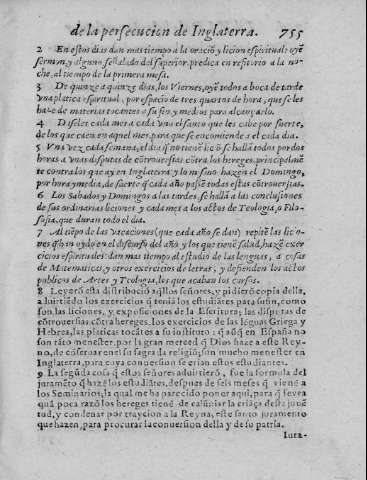 de la persecucion de Inglaterra. 755
2 En estos dias dan mas tiempo a la oraciō y licion espiritual: oyē
sermon, y alguno señalado del superior, predica en refitorio a la no-
che, al tiempo de la primera mesa.
3 De quinze a quinze dias, los Viernes, oyē todos a boca de tarde
vna platica espiritual, por espacio de tres quartos de hora, que se les
haze de materias tocantes a su fin, y medios para alcançarlo.
4 Diseles cada mes a cada vno el santo que les cabe por suerte,
de los que caen en aquel mes, para que se encomiende a el cada dia.
5 Vna vez cada semana, el dia q̄ no tienē liciō se hallā todos por dos
horas a vnas disputas de cōtrouersias cōtra los hereges, principalmē
te contra los que ay en Inglaterra, y lo mismo hazen el Domingo,
por hora y media, de suerte q̄ cada año passē todas estas cōtrouersias.
6 Los Sabados y Domingos a las tardes, se hallā a las conclusiones
de sus ordinarias liciones, y cada mes a los actos de Teologia, o Filo-
sofia, que duran todo el dia.
7 Al tiēpo de las vacaciones (que cada año se dan) repitē las licio
nes q̄ hā oydo en el discurso del año, y los que tienē salud, hazē exer
cicios espirituales: dan mas tiempo al estudio de las lenguas, a cosas
de Matematicas, y otros exercicios de letras, y defienden los actos
publicos de Artes y Teologia, los que acaban los cursos.
8 Leyerō esta distribuciō aquellos señores, y pidierō copia della,
aduirtiēdo los exercicios q̄ teniā los estudiātes para su fin, como
son, las liciones, y exposiciones de la Escritura; las disputas de
cōtrouersias cōtra hereges, los exercicios de las lēguas Griega y
Hebrea, las platicas tocātes a su instituto: q̄ aūq̄ en España no
son tāto menester, por la gran merced q̄ Dios haze a este Rey-
no, de cōseruar en el su sagrada religiō; son mucho menester en
Inglaterra, para cuya conuersion se crian estos estudiantes.
9 La segūda cosa q̄ estos señores aduirtierō, fue la formula del
juramēto q̄ hazē los estudiātes, despues de seis meses q̄ vienē a
los Seminarios, la qual me ha parecido poner aqui, para q̄ se vea
quā poca razō los hereges tienē de calūniar la criāça desta juuē
tud, y condenar por traycion a la Reyna, este santo juramento
que hazen, para procurar la conuersion della y de su patria.
Iura-